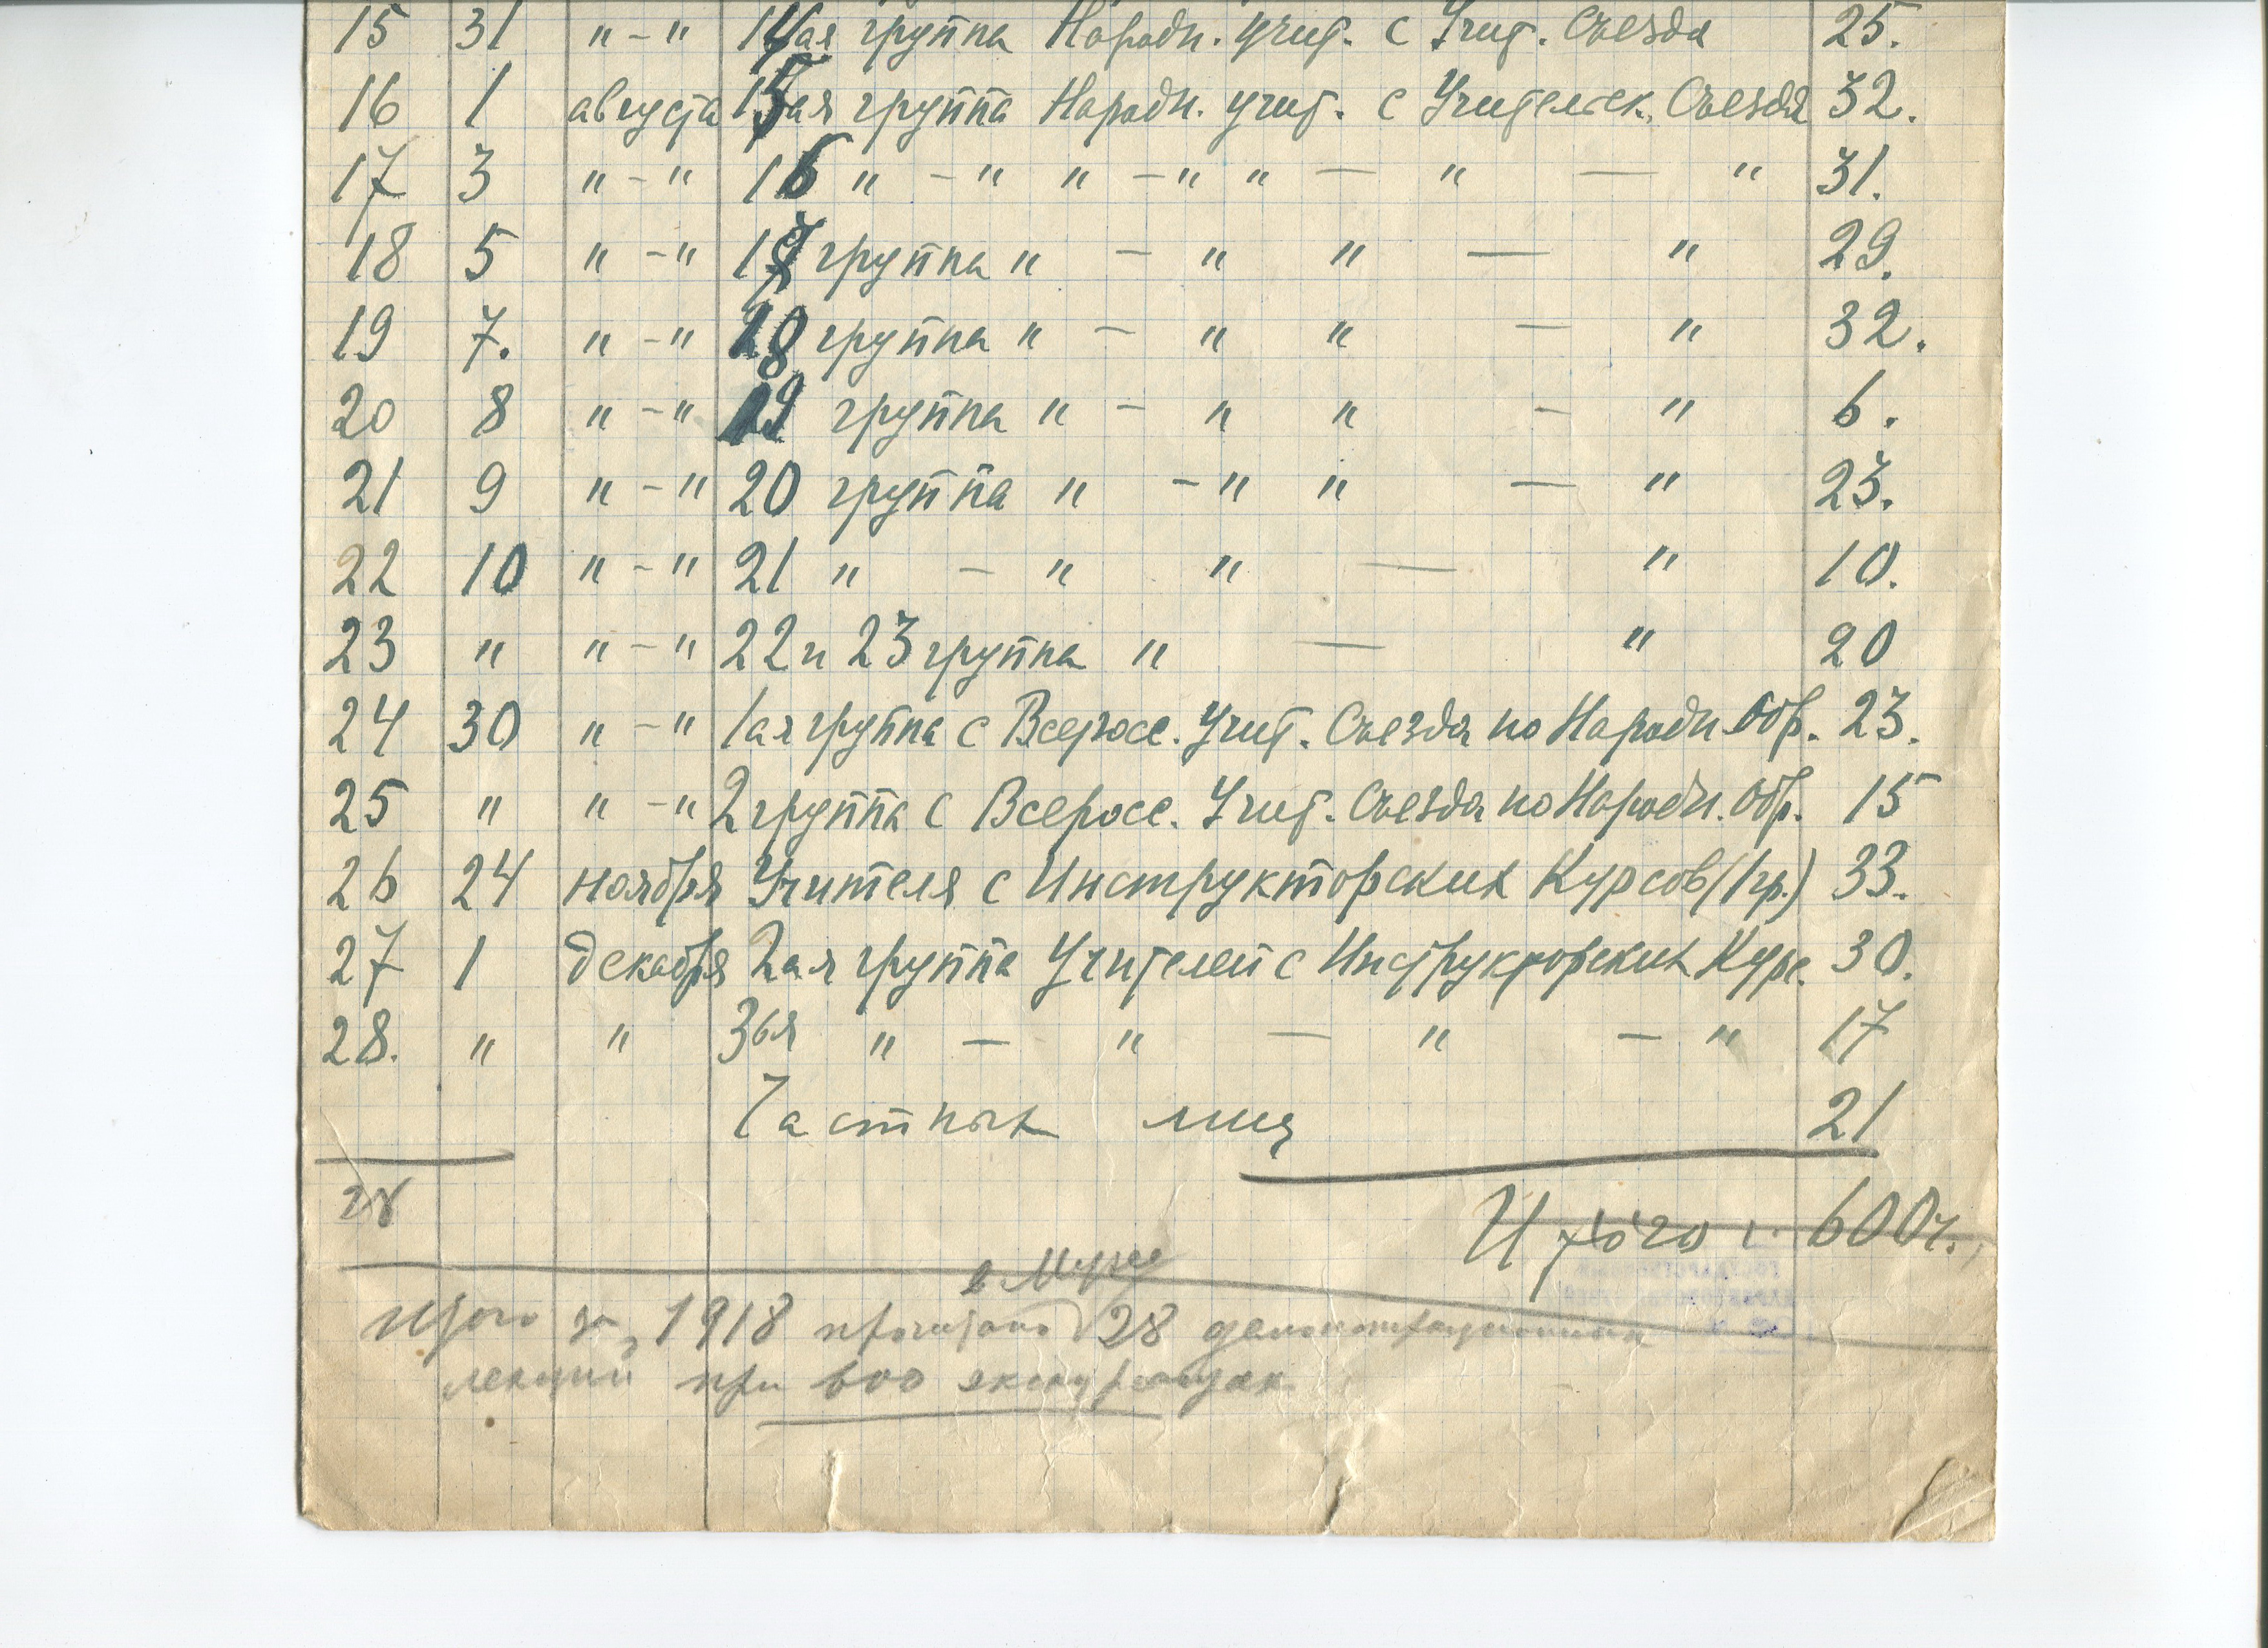 15 31 " - " 14ая группа Народн. учит. с Учит. Съезда 25.
16 1 августа 15ая группа Народн. учит. с Учительск. Съезда 32.
17 3 " - " 16 " - " " - " " — " — " 31.
18 5 " - " 17 группа " - " " — " 29.
19 7. " - " 18 группа " - " " — " 32.
20 8 " - " 19 группа " - " " - " 6.
21 9 " - " 20 группа " - " " — " 23.
22 10 " - " 21 " - " " — " 10.
23 " " - " 22 и 23 группа " — " 20
24 30 " - " 1ая группа с Всеросс. Учит. Съезда по Народн. Обр. 23.
25 " " - " 2 группа с Всеросс. Учит. Съезда по Народн. Обр. 15
26 24 ноября Учителя с Инструкторских Курсов (1 гр.) 33.
27 1 декабря 2ая группа Учителей с Инструкторских Курс. 30.
28. " " 3ья " — " — " — " 17
Частных лиц 21
28
Итого 600ч.
в Музее
Итого за 1918 прочитано 28 демонстрационных
лекций при 600 экскурсантах